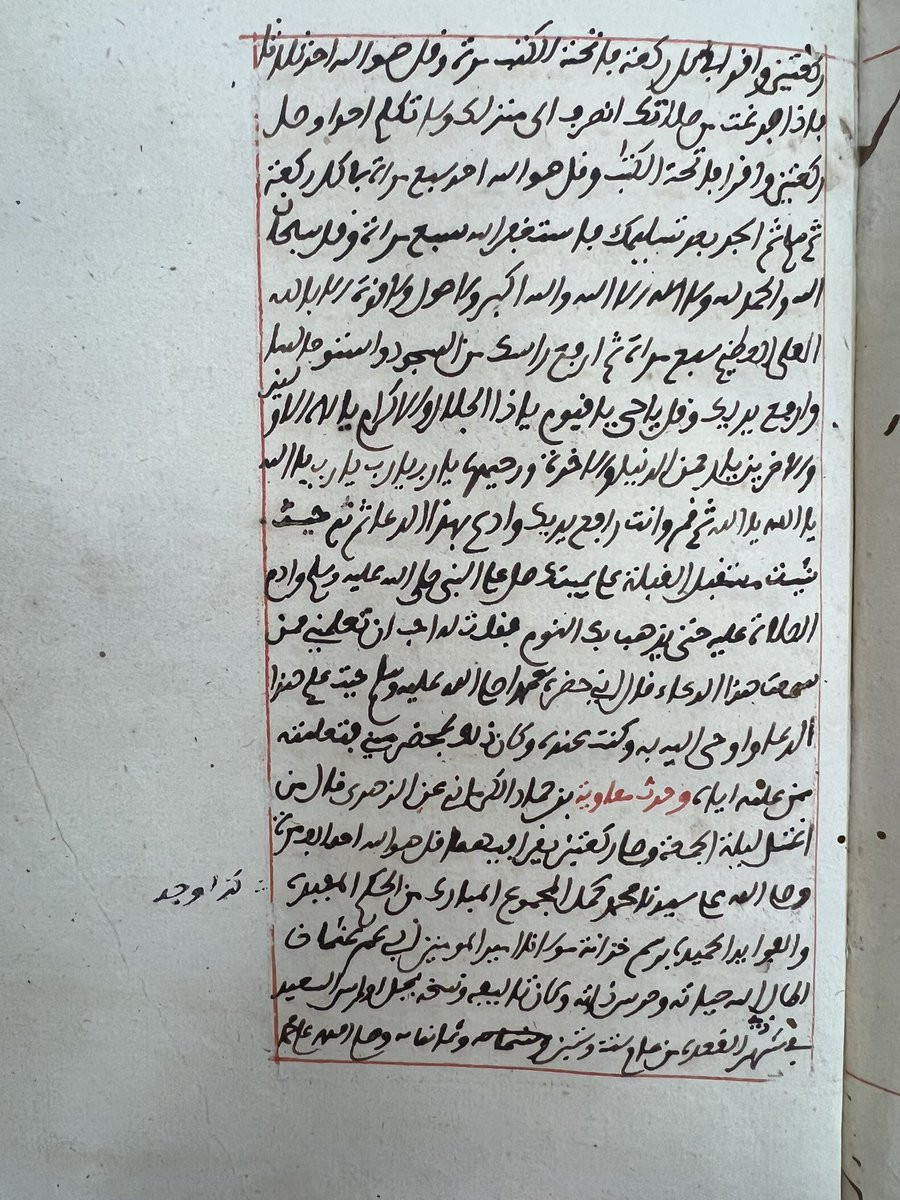 ركعتين واقرا في كل ركعة بفاتحة الكتب مرة وقل هو الله احد ثلاثا
فاذا فرغت من صلاتك انصرف الى منزلك ولا تكلم احدا وصل
ركعتين واقرا فاتحة الكتب وقل هو الله احد سبع مراة في كل ركعة
ثم اسجد بعد تسليمك فاستغفر الله سبع مراة وقل سبحان
الله والحمد لله ولا اله الا الله والله اكبر ولا حول ولا قوة الا بالله
العلي العظيم سبع مراة ثم ارفع راسك من السجود واستو جالسا
وارفع يديك وقل يا حي يا قيوم يا ذا الجلال والاكرام يا اله الاولين
والاخرين يا رحمن الدنيا والاخرة ورحيمها يا رب يا رب يا رب يا الله
يا الله يا الله ثم قم وانت رافع يديك وادع بهذا الدعا ثم نم حيث
شيت مستقبل القبلة على يمينك صل على النبي صلى الله عليه وسلم وادم
الصلاة عليه حتى يذهب بك النوم فقلت له احب ان تعلمني ممن
سمعت هذا الدعاء فقال اني حضرت محمدا صلى الله عليه وسلم حيث علم هذا
الدعا واوحي اليه به وكنت عنده وكان ذلك بمحضر مني فتعلمته
ممن علمه اياه وحدث معاوية بن حماد الكرماني عن الزهري قال من
اغتسل ليلة الجمعة وصلى ركعتين يقرا فيهما قل هو الله احد الف مرة
وصلى الله على سيدنا محمد كمل المجموع المبارك من الحكم المفيدة
كذا وجد
والفوايد الحميدة برسم خزانة مولانا امير المومنين ابي عمر عثمان
اطال الله حياته وحرس ذاته وكان تاليفه ونسخه
في شهر القعدة من عام ست وستين وثمانماية وصلى الله على محمد